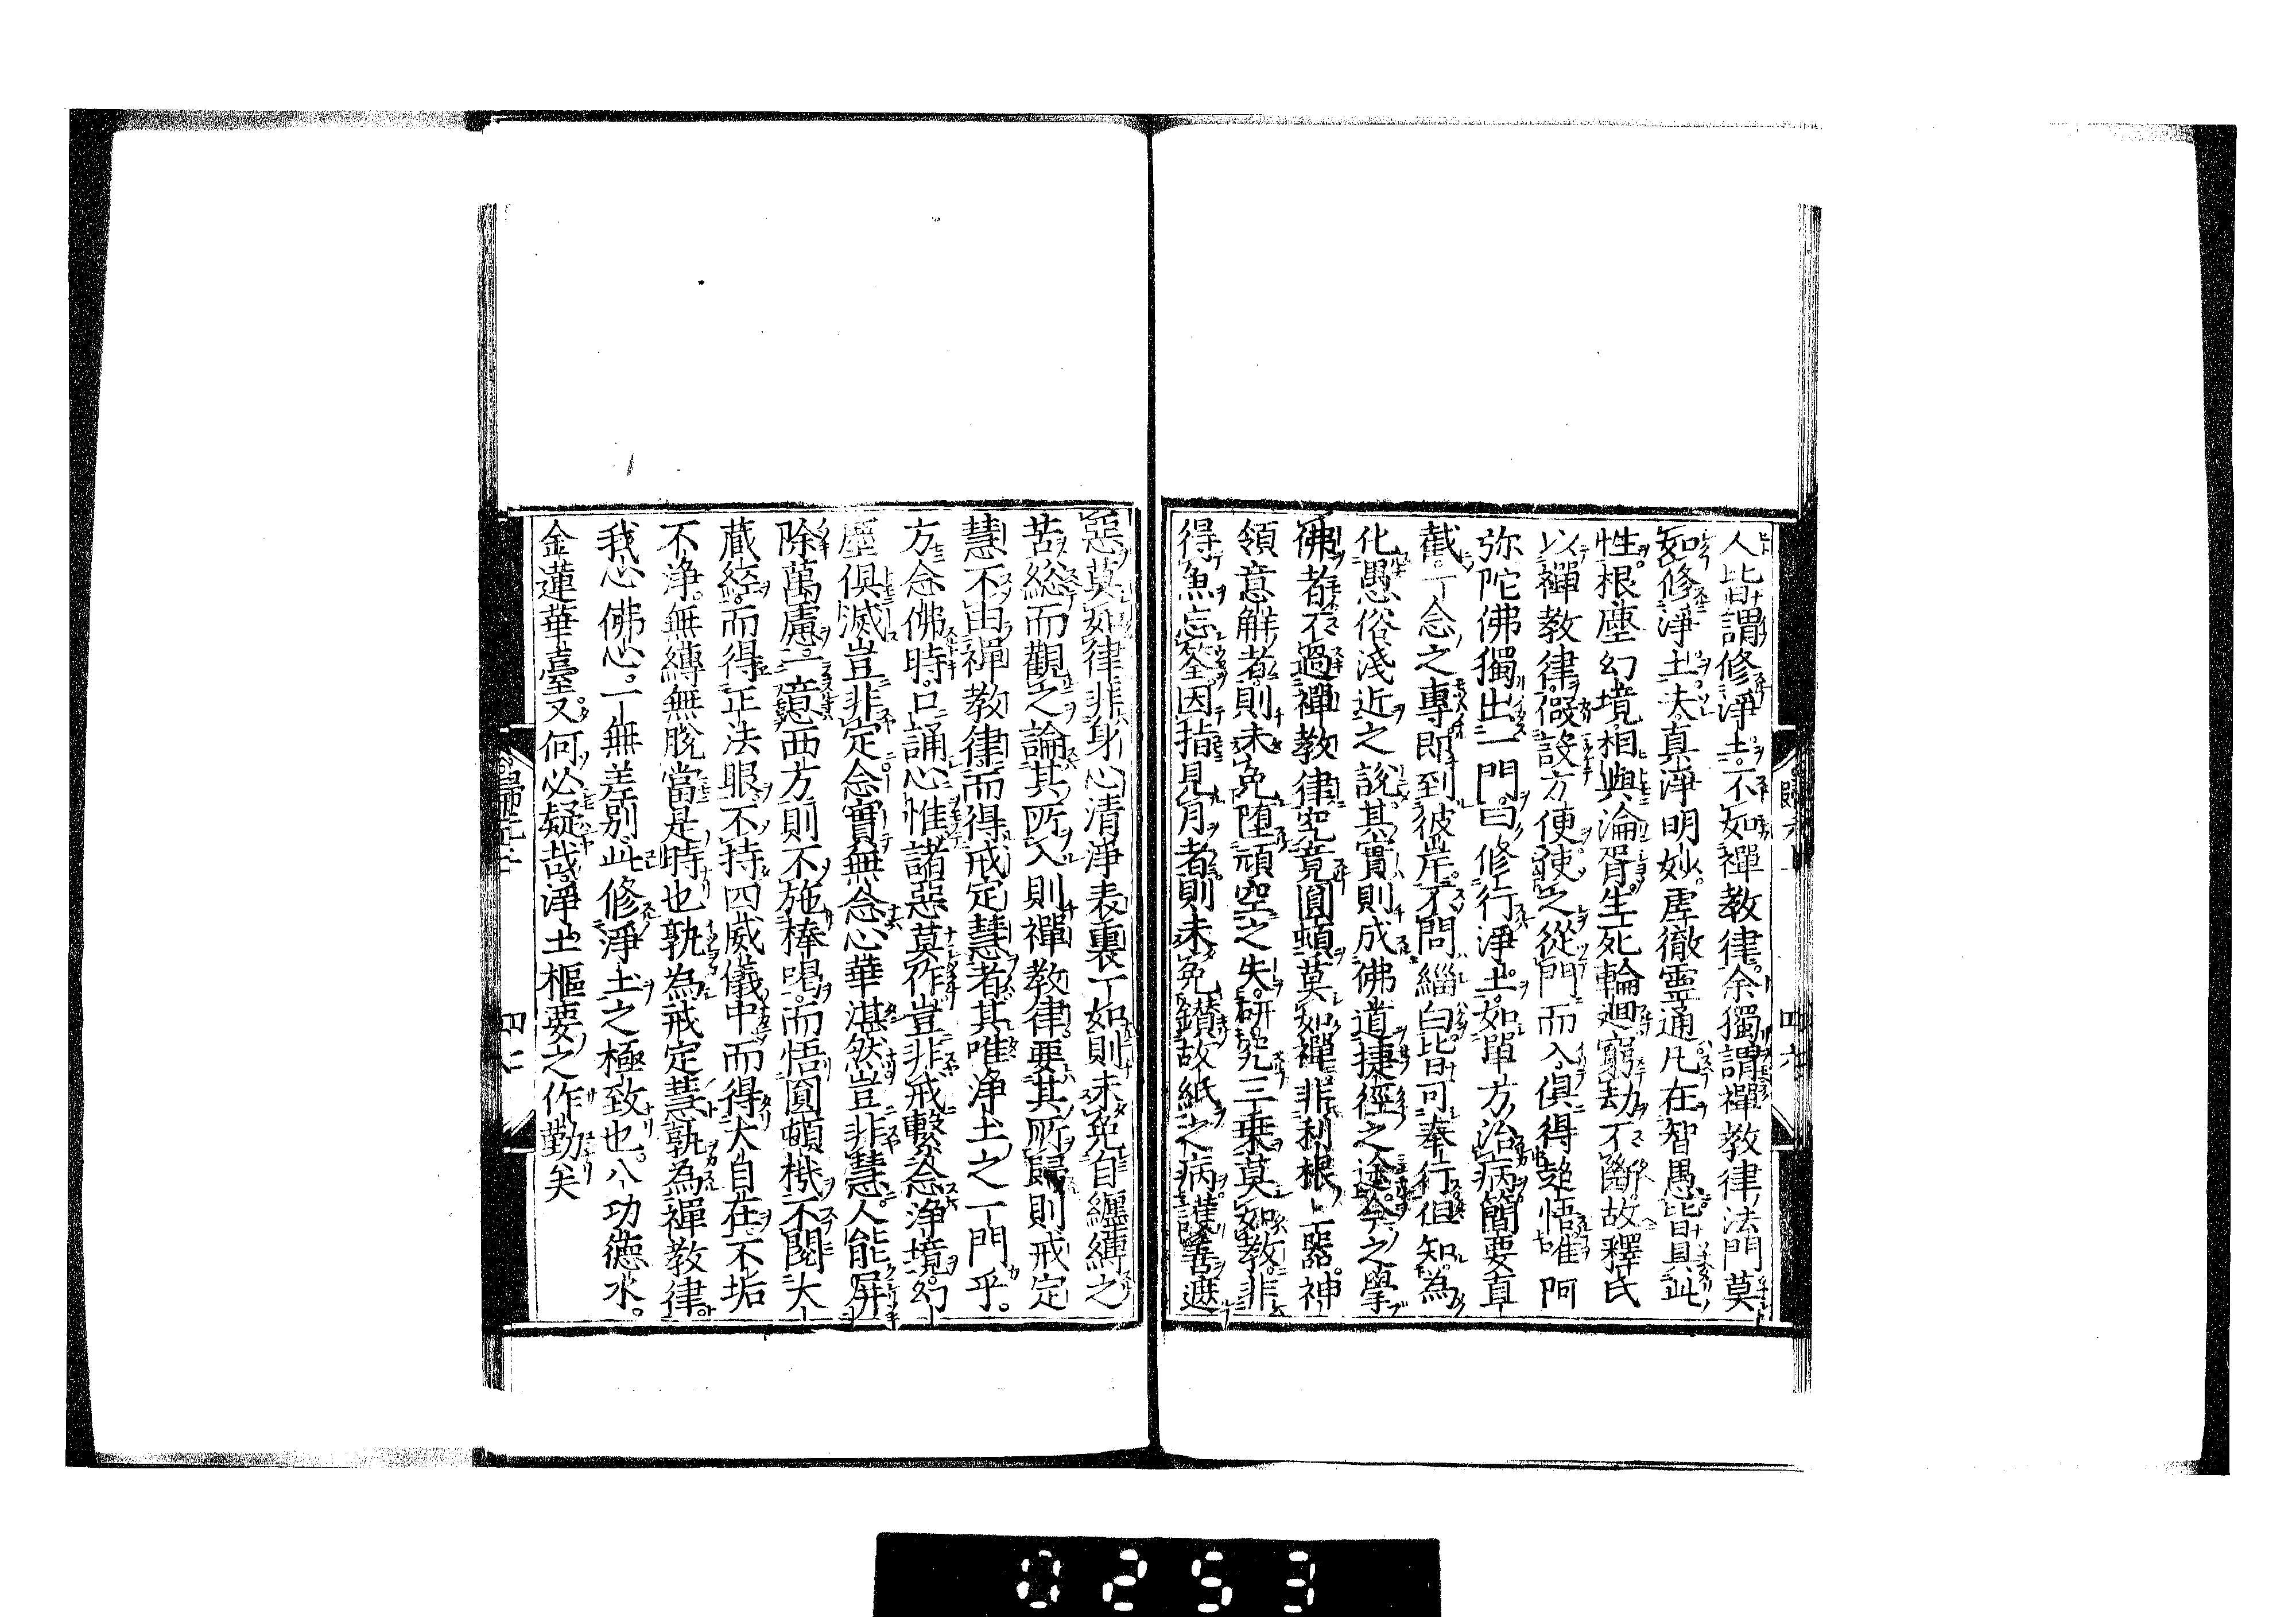 人皆謂修淨土。不如禪教律。余獨謂禪教律法門莫
如修淨土。夫真淨明妙。虛徹靈通。凡在智愚皆具此
性。根塵幻境。相與淪胥。生死輪迴。窮劫不斷。故釋氏
以禪教律。假設方便。使之從門而入。俱得超悟。唯阿
弥陀佛獨出一門。曰修行淨土。如單方治病。簡要直
截。一念之專。即到彼岸。不問緇白。皆可奉行。但知為
化愚俗淺近之說。其實則成佛道捷徑之途。今之學
佛者。不過禪教律。究竟圓頓莫如禪。非利根上器。神
領意解者。則未免墮頑空之失。研究三乘莫如教。非
得魚忘筌。因指見月者。則未免鑽故紙之病。護善遮
惡莫如律。非身心清淨表裏一如。則未免自纏縛之
苦。総而觀之。論其所入。則禪教律。要其所歸。則戒定
慧。不由禪教律。而得戒定慧者。其唯淨土之一門乎。
方念佛時。口誦心惟。諸惡莫作。豈非戒。繫念淨境。幻
塵俱滅。豈非定。念實無念。心華湛然。豈非慧。人能屏
除萬慮。一意西方。則不施棒喝。而悟圓頓機。不閱大
藏経。而得正法眼。不持四威儀中。而得大自在。不垢
不淨。無縛無脫。當是時也。孰為戒定慧。孰為禪教律。
我心佛心。一無差別。此修淨土之極致也。八功德水。
金蓮華臺。又何必疑哉。淨土樞要之作勤矣
0253